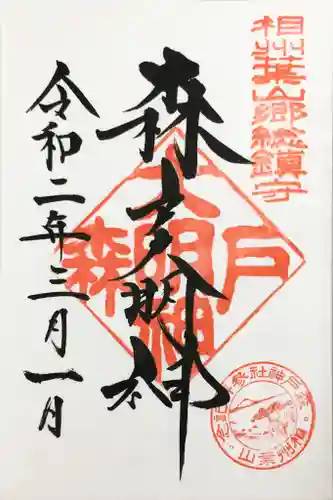 相州葉山郷総鎮守
森戸大明神
森戸大明神
令和二年三月一日
森戸神社参拝記念
相州葉山